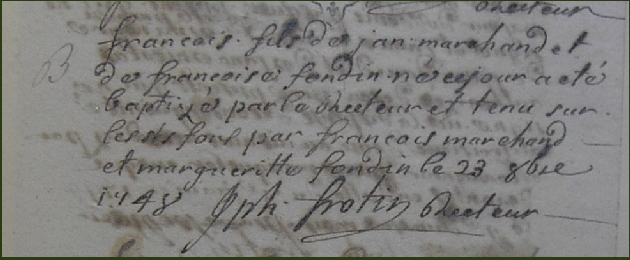 Recteur
B
francois fils de jan marchand et
de francoise fondin né ce jour a eté
baptizé par le Recteur et tenu sur
les sts fons par francois marchand
et margueritte fondin le 23 8bre
1748 Jph. frotin Recteur